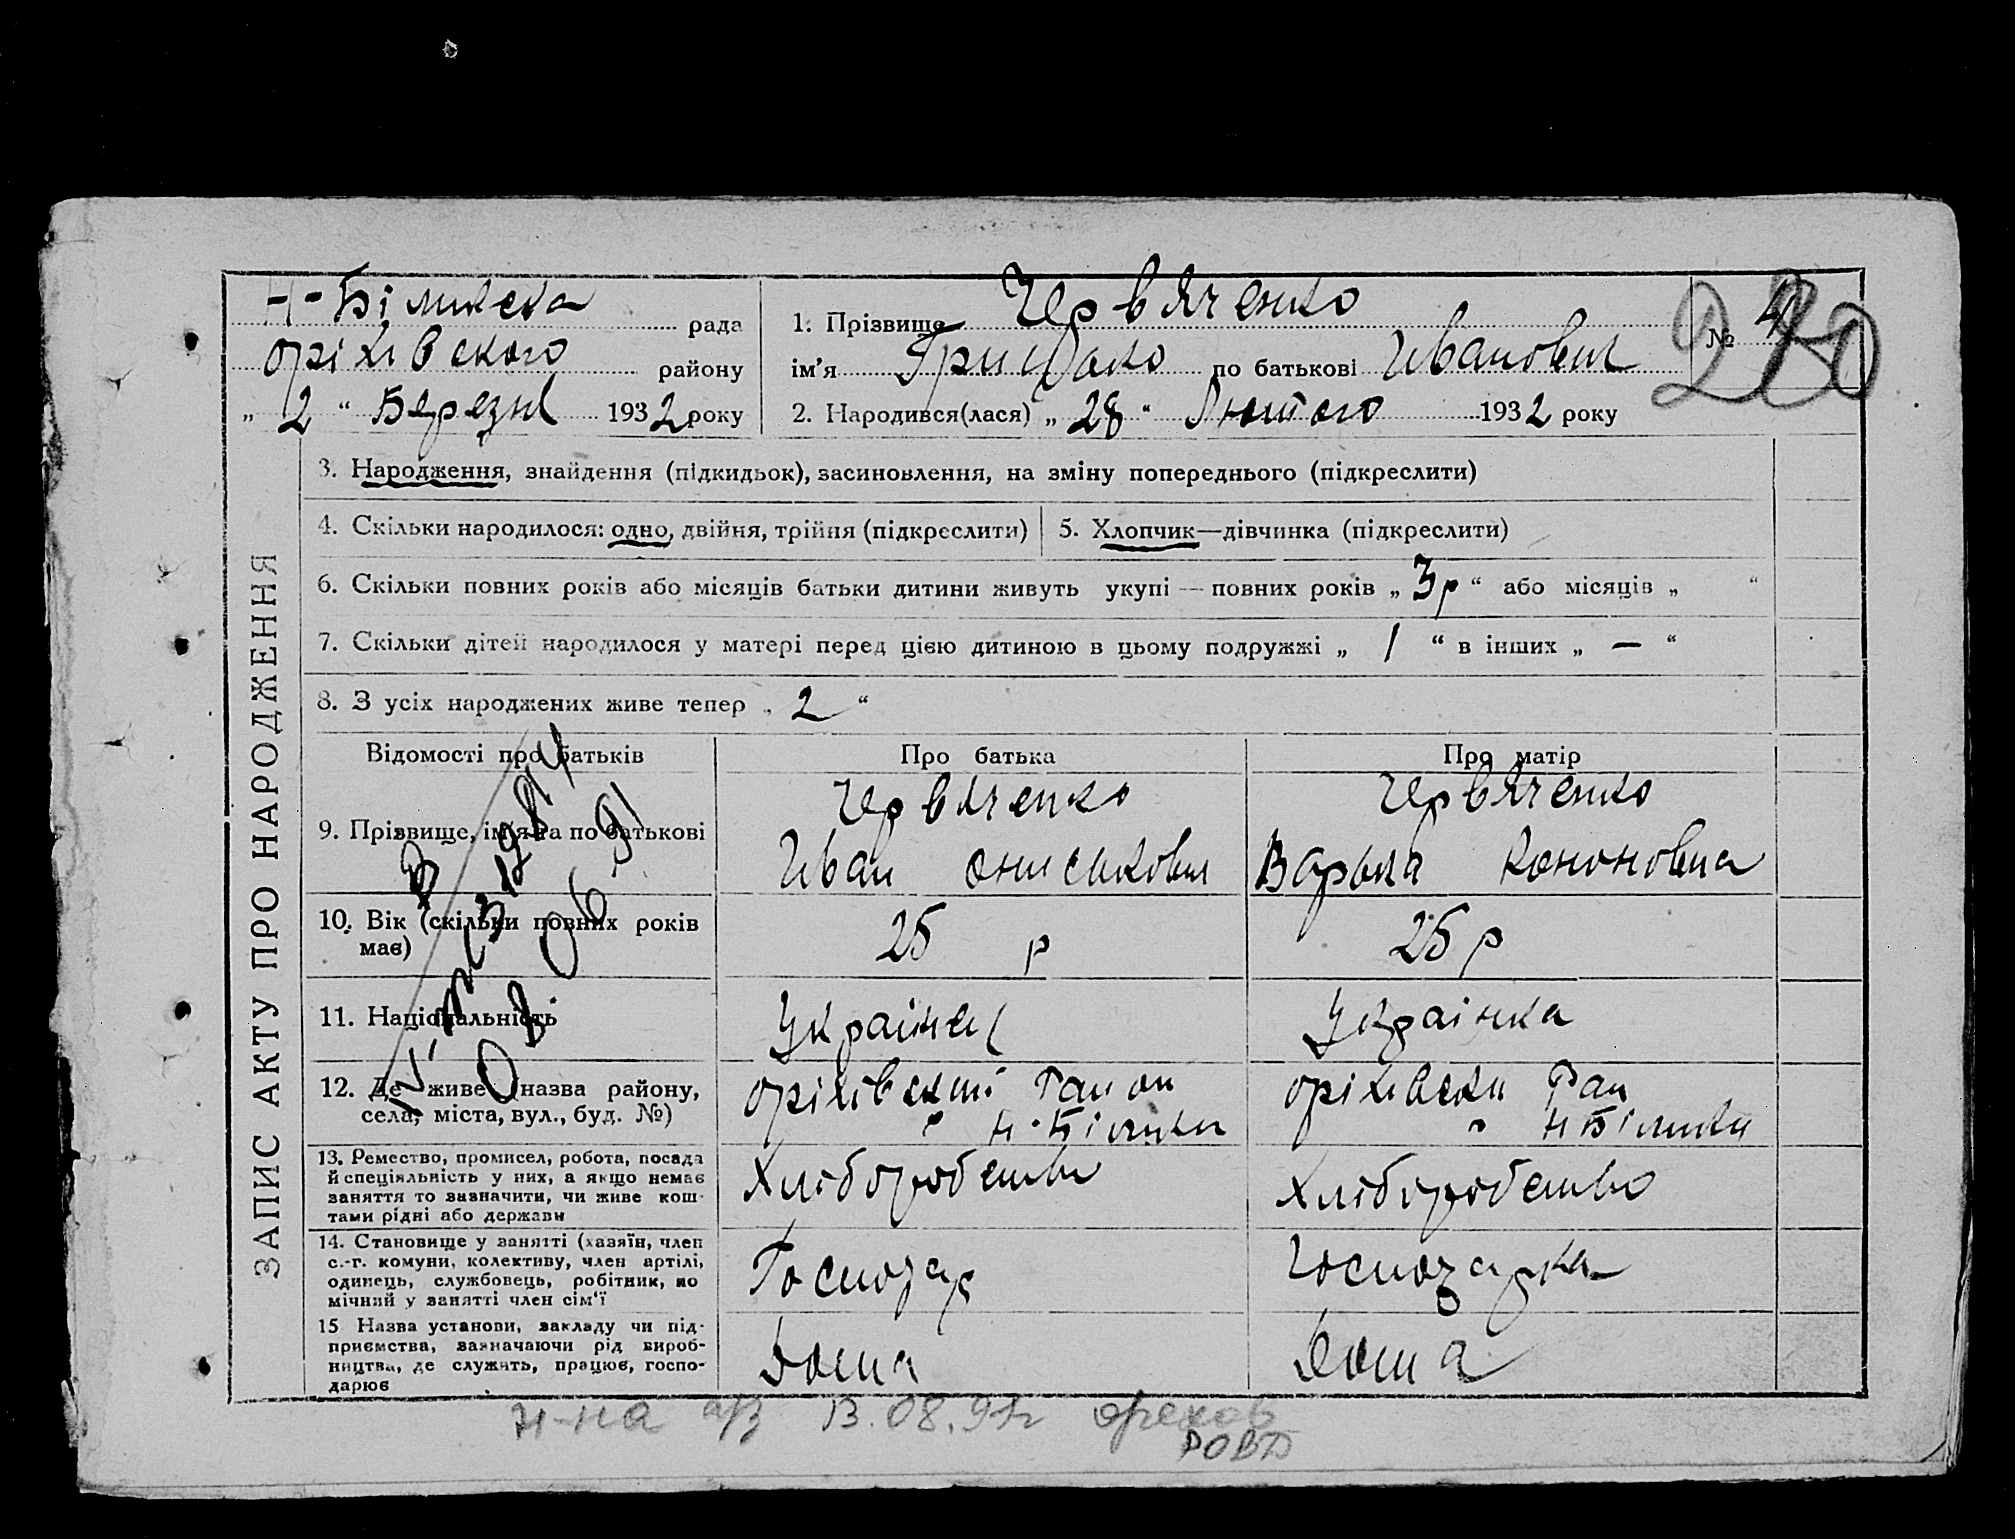 Н-Біликска рада
оріхівского району
„ 2 “ Березня 1932 року
1. Прізвище Червяченко
ім’я Грицько по батькові Иванович
2. Народився(лася) „ 28 “ Лютого 1932 року
№ 4
ЗАПИС АКТУ ПРО НАРОДЖЕННЯ
3. Народження, знайдення (підкидьок), засиновлення, на зміну попереднього (підкреслити)
4. Скільки народилося: одно, двійня, трійня (підкреслити)
5. Хлопчик—дівчинка (підкреслити)
6. Скільки повних років або місяців батьки дитини живуть укупі — повних років „ 3р “ або місяців „ “
7. Скільки дітей народилося у матері перед цією дитиною в цьому подружжі „ 1 “ в інших „ — “
8. З усіх народжених живе тепер „ 2 “
Відомості про батьків
Про батька
Про матір
9. Прізвище, ім’я та по батькові
Червяченко
Иван
Червяченко
Кононовна
10. Вік (скільки повних років
має)
25 р
25 р
11. Національність
Українец
Українка
12. Де живе (назва району,
села, міста, вул., буд. №)
оріхівский Раион
„ Н-Білики
оріхівски Раи
„ Н Білики
13. Ремество, промисел, робота, посада
й спеціяльність у них, а якщо немає
заняття то зазначити, чи живе кош-
тами рідні або держави
Хліборобство
Хліборобство
14. Становище у занятті (хазяїн, член
с.-г. комуни, колективу, член артілі,
одинець, службовець, робітник, по
мічний у занятті член сім‘ї
Господар
Господарка
15 Назва установи, закладу чи під-
приємства, зазначаючи рід вироб-
ництва, де служить, працює, госпо-
дарює
Дома
Дома
13.08.91г орехов
РОВД